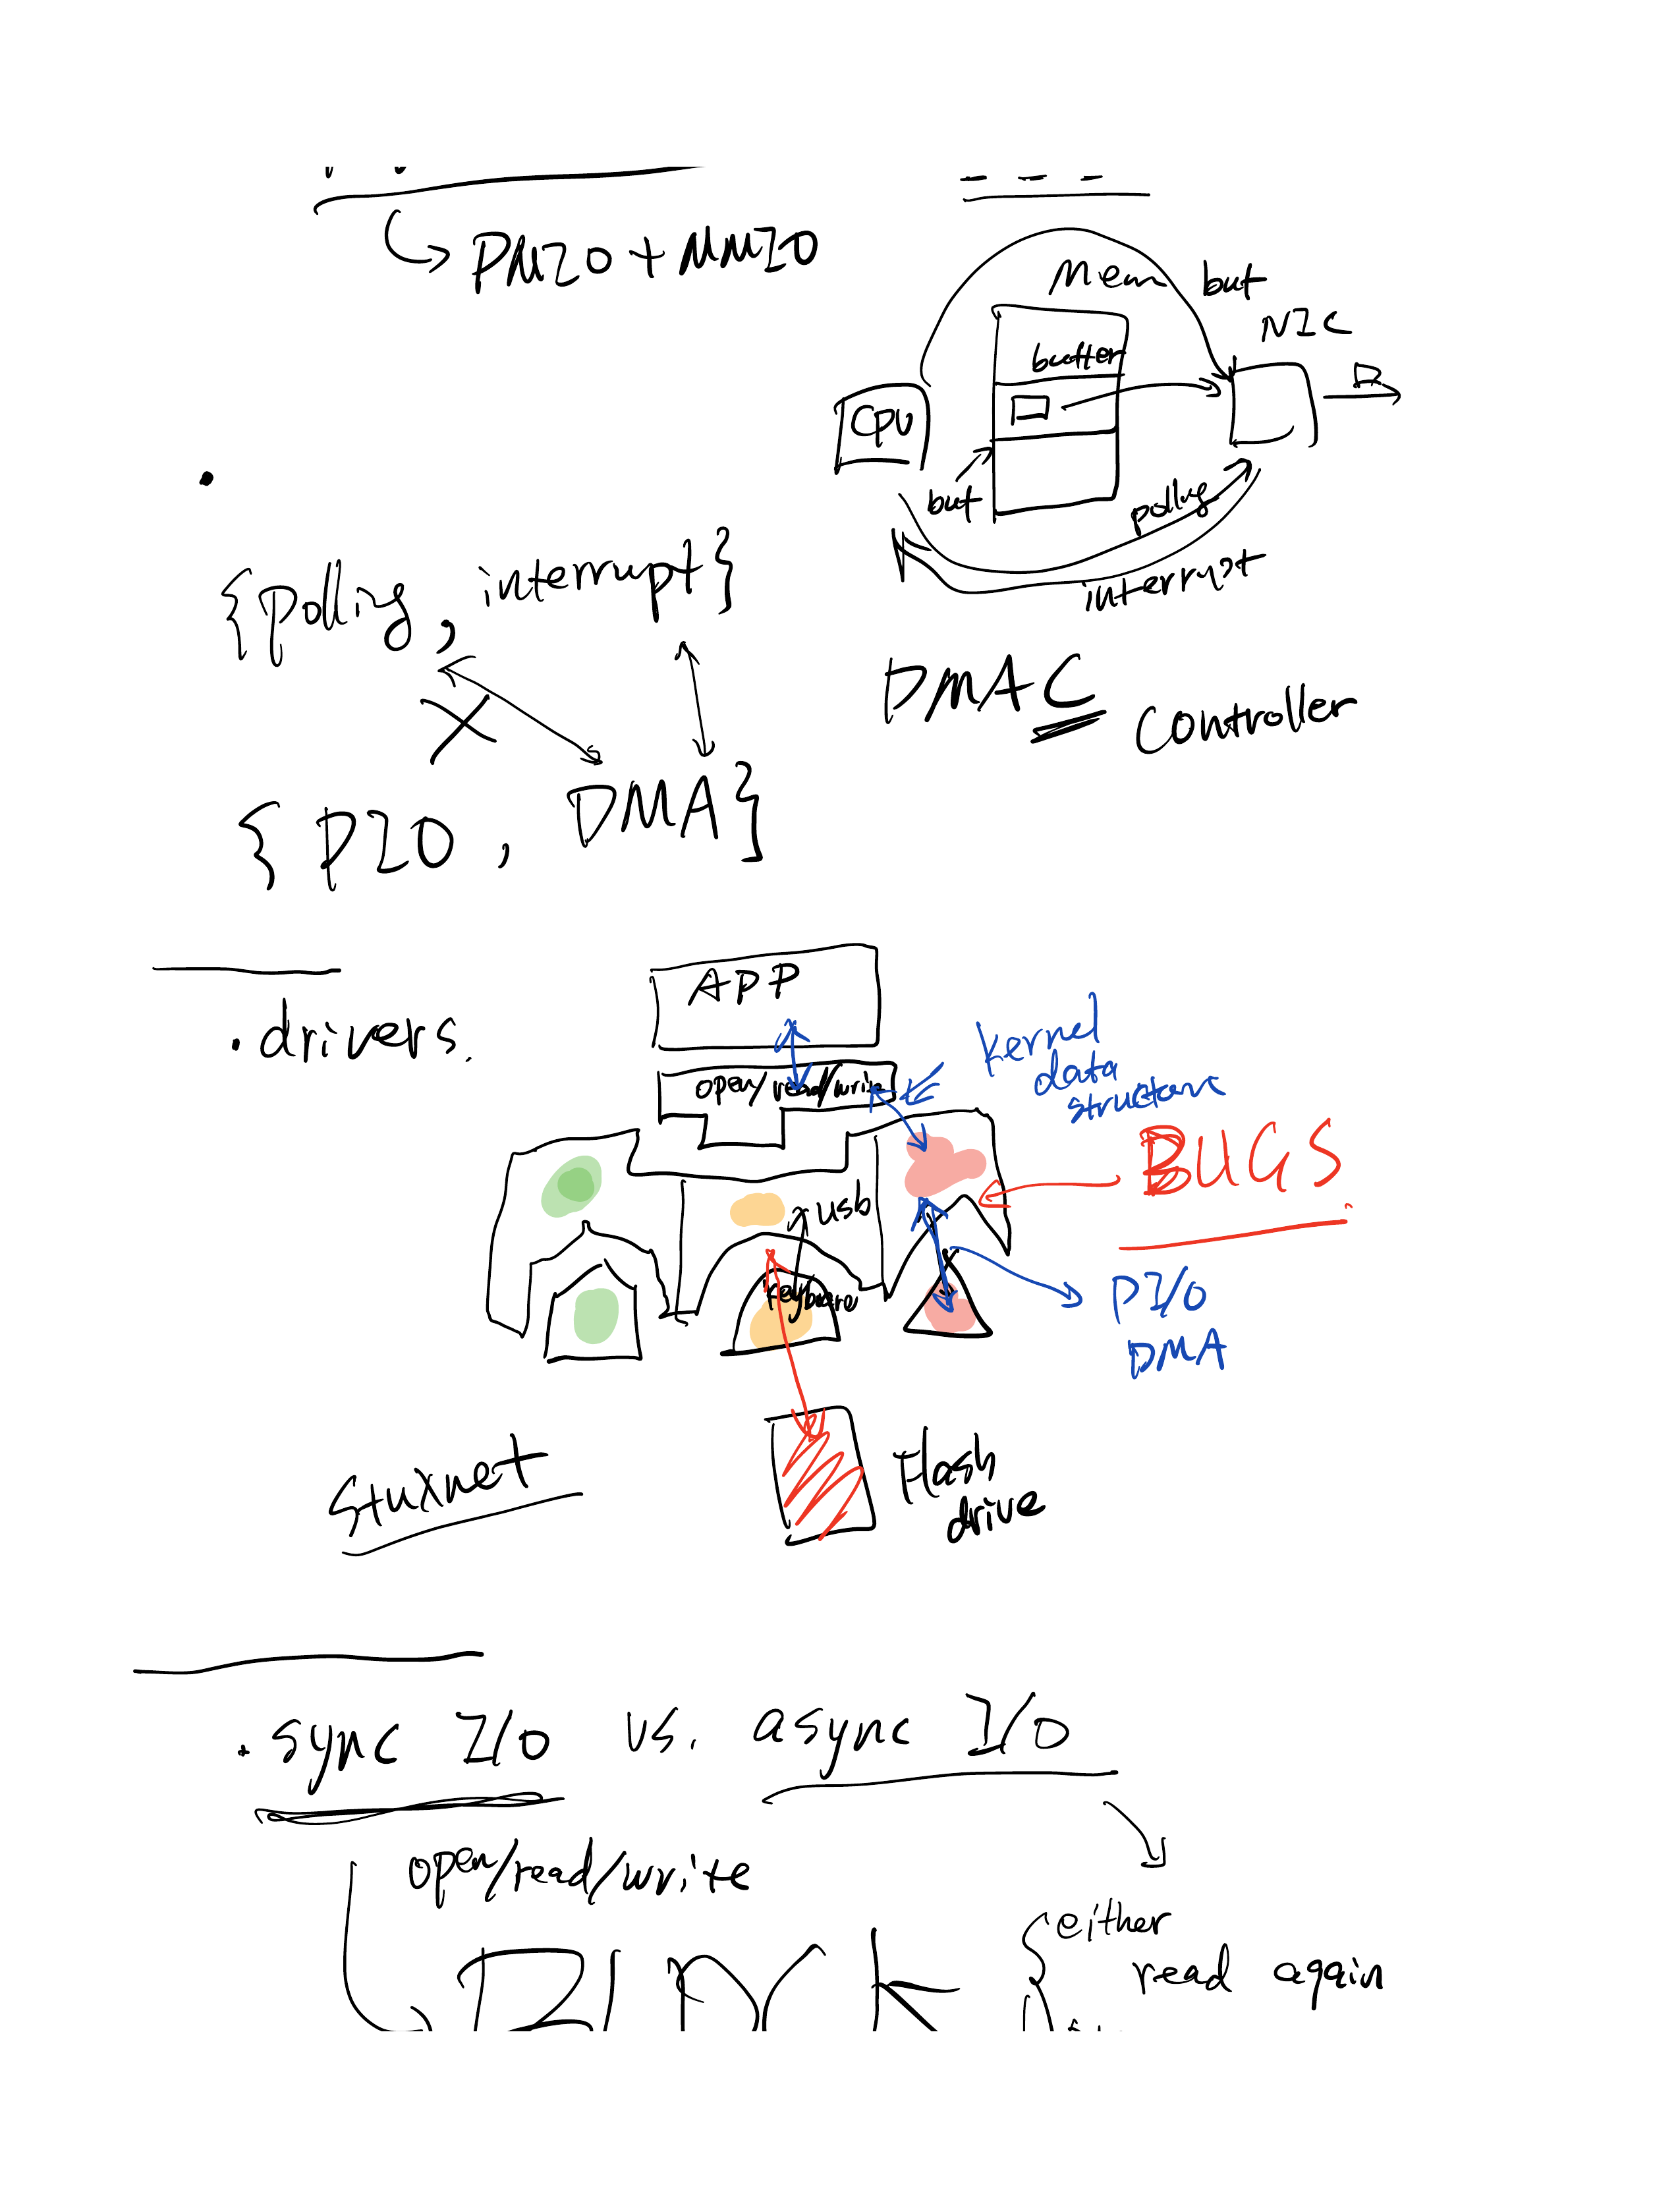 PMIO + MMIO
Mem
buf
NIC
buffer
CPU
buf
polling
interrupt
{polling, interrupt}
DMAC
Controller
{PIO, DMA}
APP
• drivers.
open/read/write
kernel
data
structure
BUGS
usb
keyboard
PI/O
DMA
Stuxnet
Flash
drive
• sync I/O vs. async I/O
open/read/write
either
read again